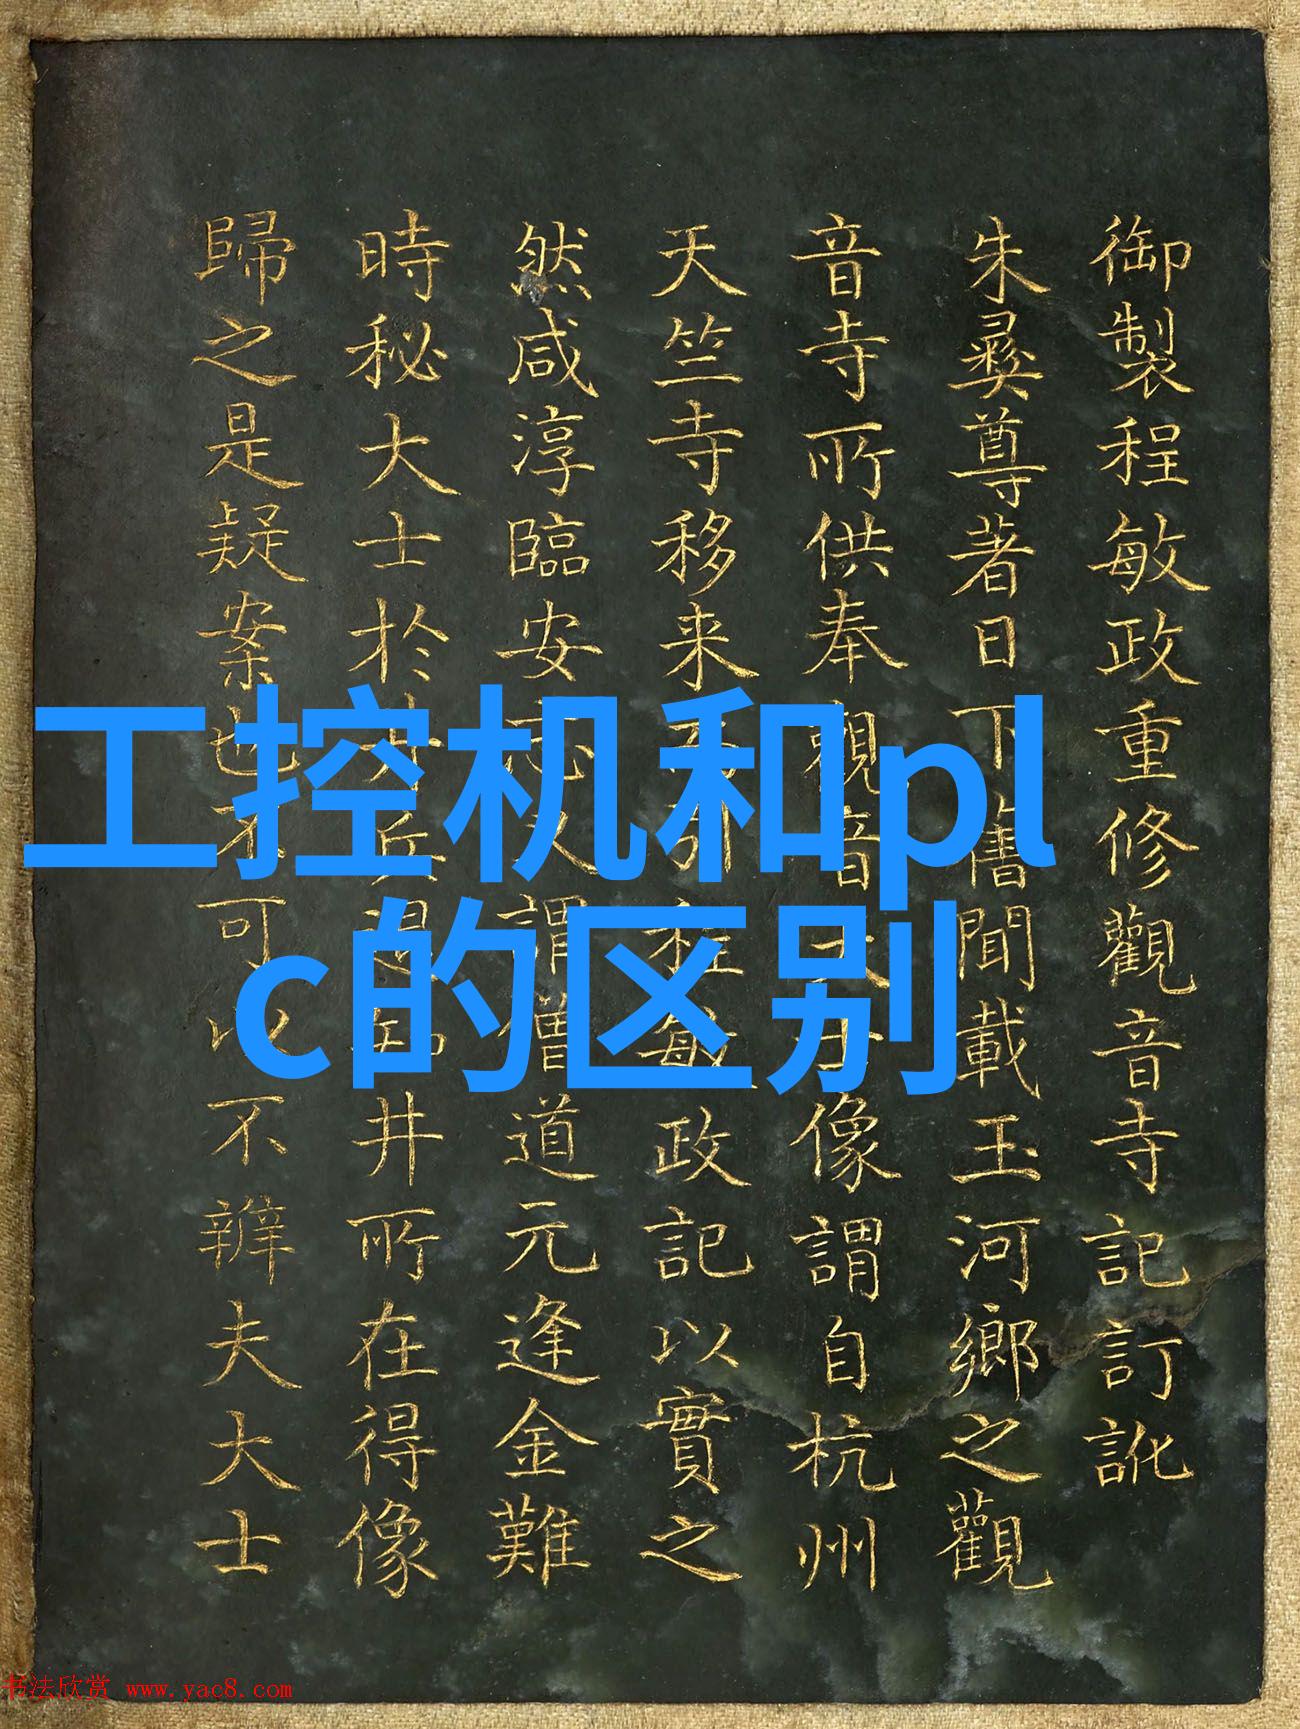 御製程敏政重修觀音寺記訂訛
朱彝尊著日下舊聞載玉河鄉之觀
音寺所供奉觀音大士像謂自杭州
天竺寺移来程敏政記以實之
然咸淳臨安志又謂僧道元逢金難
時秘大士於井所在得像
歸之是疑案也不可以不辨夫大士
工控机和pl
c的区别
书法欣赏 www.yac8.com